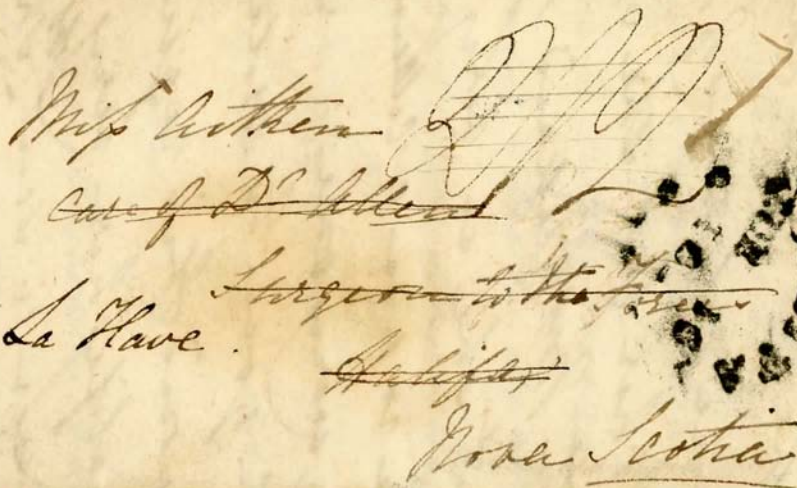 Miss Aitken
care of Dr Allen
Surgeon to the Forces
La Have.
Halifax
Nova Scotia